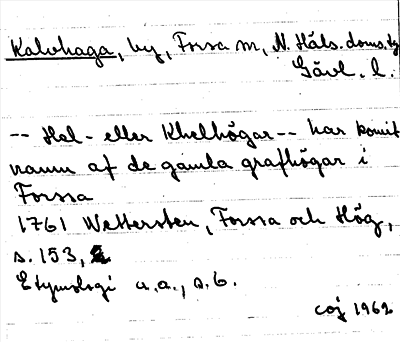 Kalvhaga, by, Forsa sn, N. Häls. doms.
Gävl. l.
-- Hal- eller Khelhögar -- har komit
namn af de gamla grafhögar i
Forssa
1761 Wettersten, Forssa och Hög,
s. 153,
Etymologi a.a., s. 6.
coj 1962